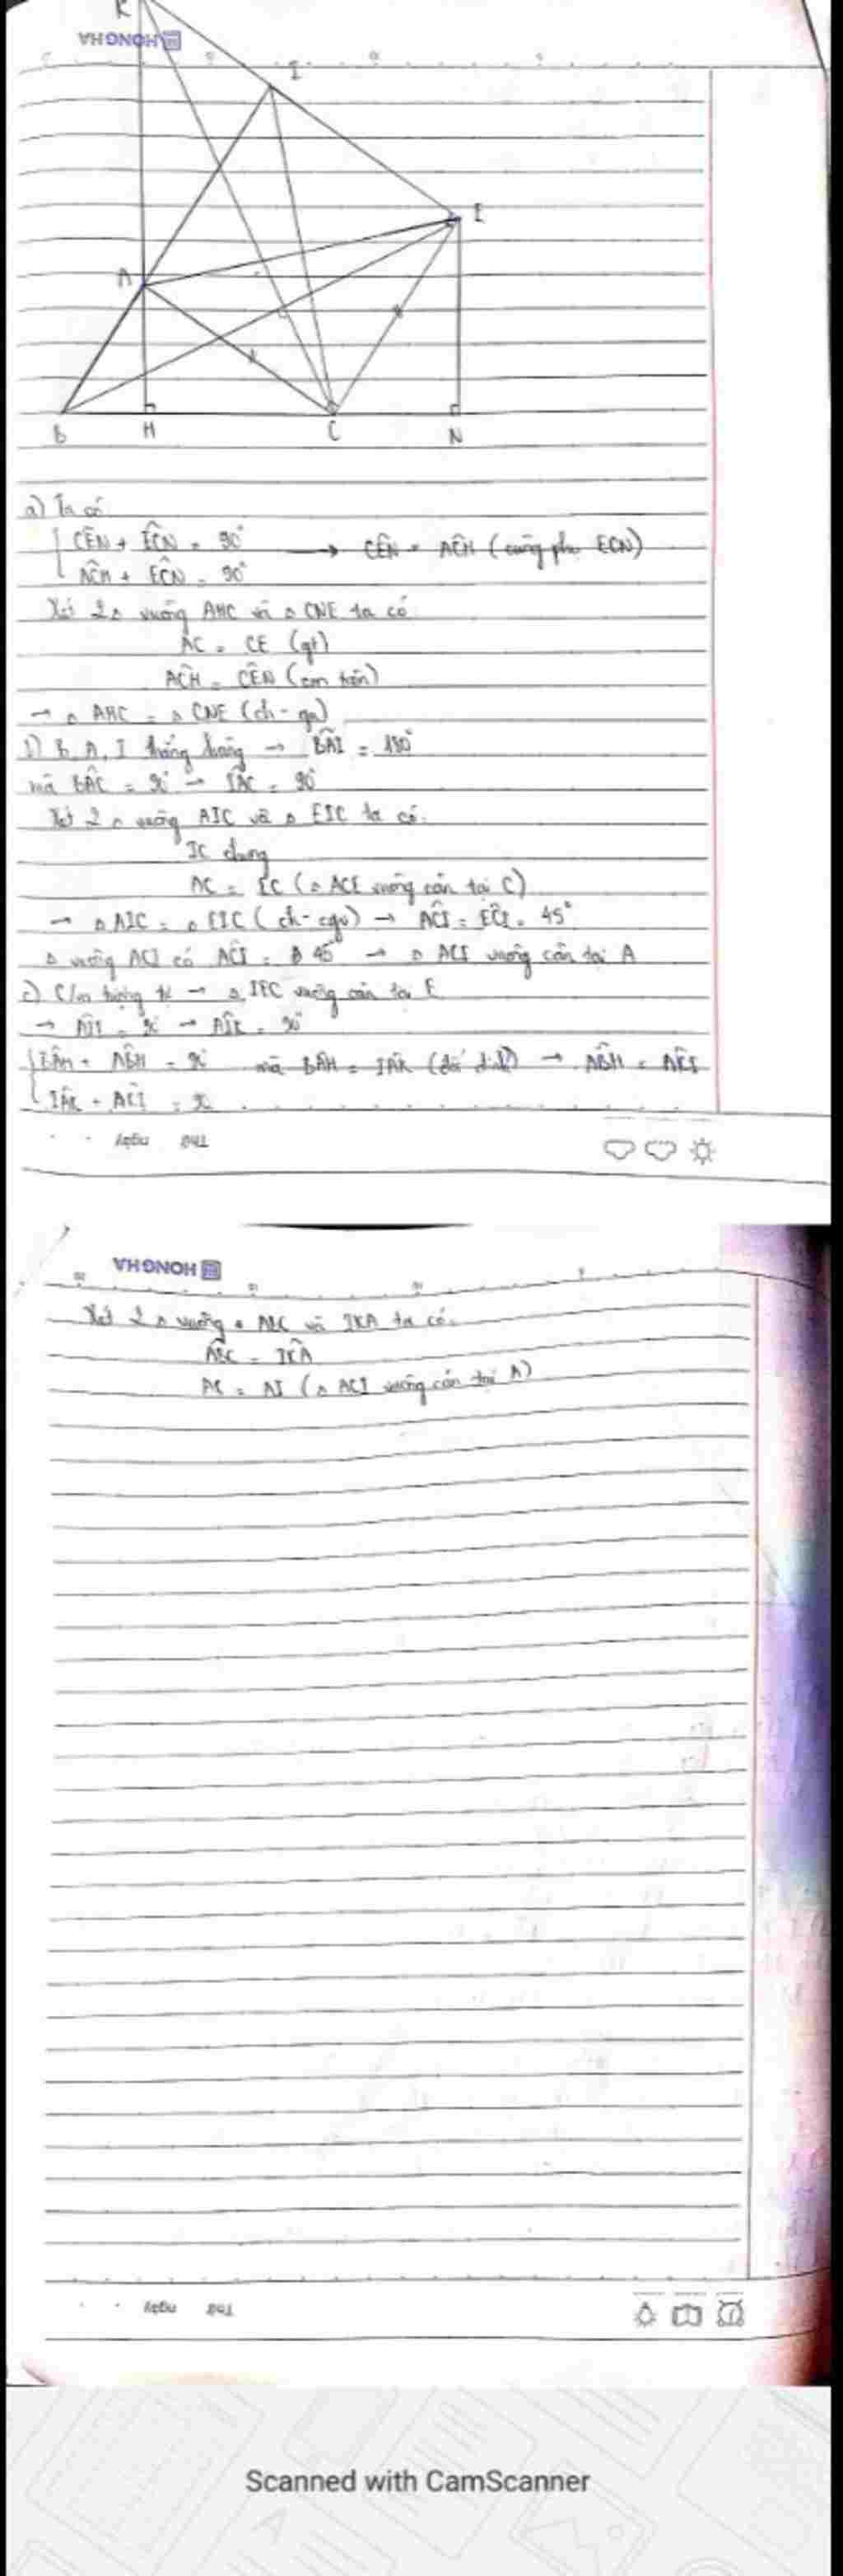 K
HONG HA
I
E
A
B H C N
a) Ta có
CÊN + ECN = 90° → CÊN = ACH (cùng phụ ECN)
ACH + ECN = 90°
Xét 2Δ vuông AHC và Δ CNE ta có
AC = CE (gt)
ACH = CEN (cm trên)
→ Δ AHC = Δ CNE (ch - gn)
B, A, I thẳng hàng → BAI = 180°
mà BAC = 90° → IAC = 90°
Xét 2 Δ vuông AIC và Δ EIC ta có.
IC chung
AC = EC (Δ ACE vuông cân tại C)
→ Δ AIC = Δ EIC (ch - cgv) → ACI = ECI = 45°
Δ vuông ACI có ACI = 45° → Δ ACI vuông cân tại A
c) C/m tương tự → Δ IEC vuông cân tại E
→ = 90° → AIK = 90°
BAH + ABH = 90° mà BAH = IAK (đối đỉnh) → ABH = AKI
IAK + = 90
Thứ ngày
HONG HA
Xét 2 Δ vuông ABC và IKA ta có.
ABC = IKA
AC = AI (Δ ACI vuông cân tại A)
Thứ ngày
Scanned with CamScanner